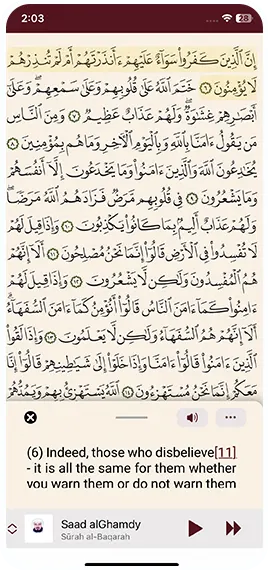 2:03
إِنَّ ٱلَّذِينَ كَفَرُوا۟ سَوَآءٌ عَلَيْهِمْ ءَأَنذَرْتَهُمْ أَمْ لَمْ تُنذِرْهُمْ
لَا يُؤْمِنُونَ ٦ خَتَمَ ٱللَّهُ عَلَىٰ قُلُوبِهِمْ وَعَلَىٰ سَمْعِهِمْ ۖ وَعَلَىٰٓ
أَبْصَٰرِهِمْ غِشَٰوَةٌ ۖ وَلَهُمْ عَذَابٌ عَظِيمٌ ٧ وَمِنَ ٱلنَّاسِ
مَن يَقُولُ ءَامَنَّا بِٱللَّهِ وَبِٱلْيَوْمِ ٱلْءَاخِرِ وَمَا هُم بِمُؤْمِنِينَ ٨
يُخَٰدِعُونَ ٱللَّهَ وَٱلَّذِينَ ءَامَنُوا۟ وَمَا يَخْدَعُونَ إِلَّآ أَنفُسَهُمْ
وَمَا يَشْعُرُونَ ٩ فِى قُلُوبِهِم مَّرَضٌ فَزَادَهُمُ ٱللَّهُ مَرَضًا ۖ
وَلَهُمْ عَذَابٌ أَلِيمٌۢ بِمَا كَانُوا۟ يَكْذِبُونَ ١٠ وَإِذَا قِيلَ لَهُمْ
لَا تُفْسِدُوا۟ فِى ٱلْأَرْضِ قَالُوٓا۟ إِنَّمَا نَحْنُ مُصْلِحُونَ ١١ أَلَآ إِنَّهُمْ
هُمُ ٱلْمُفْسِدُونَ وَلَٰكِن لَّا يَشْعُرُونَ ١٢ وَإِذَا قِيلَ لَهُمْ
ءَامِنُوا۟ كَمَآ ءَامَنَ ٱلنَّاسُ قَالُوٓا۟ أَنُؤْمِنُ كَمَآ ءَامَنَ ٱلسُّفَهَآءُ ۗ
أَلَآ إِنَّهُمْ هُمُ ٱلسُّفَهَآءُ وَلَٰكِن لَّا يَعْلَمُونَ ١٣ وَإِذَا لَقُوا۟
ٱلَّذِينَ ءَامَنُوا۟ قَالُوٓا۟ ءَامَنَّا وَإِذَا خَلَوْا۟ إِلَىٰ شَيَٰطِينِهِمْ قَالُوٓا۟ إِنَّا
مَعَكُمْ إِنَّمَا نَحْنُ مُسْتَهْزِءُونَ ١٤ ٱللَّهُ يَسْتَهْزِئُ بِهِمْ وَيَمُدُّهُمْ
(6) Indeed, those who disbelieve[11]
- it is all the same for them whether
you warn them or do not warn them
Saad alGhamdy
Sūrah al-Baqarah